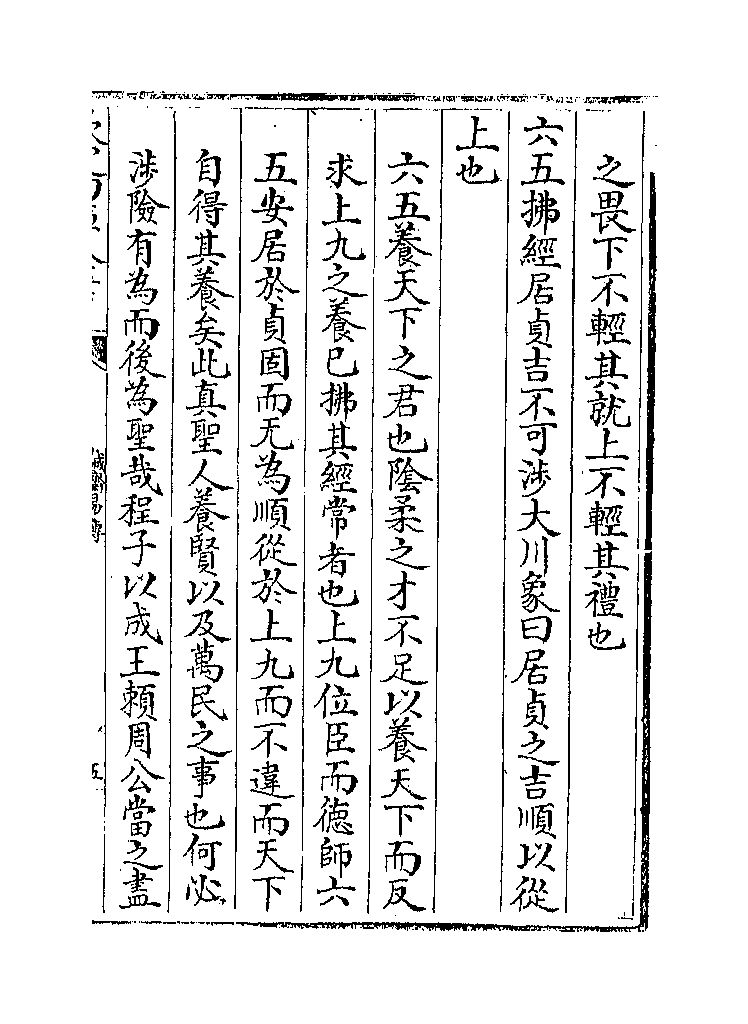 之畏下不輕其就上不輕其禮也
六五拂經居貞吉不可涉大川象曰居貞之吉順以從
上也
六五養天下之君也陰柔之才不足以養天下而反
求上九之養已拂其經常者也上九位臣而德師六
五安居於貞固而无為順從於上九而不違而天下
自得其養矣此真聖人養賢以及萬民之事也何必
涉險有為而後為聖哉程子以成王賴周公當之盡
誠齋易傳
五